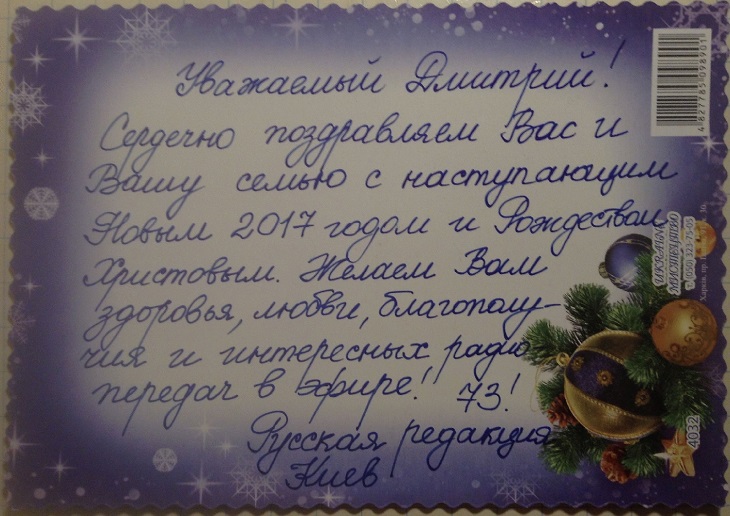 Уважаемый Дмитрий!
Сердечно поздравляем Вас и
Вашу семью с наступающим
Новым 2017 годом и Рождеством
Христовым. Желаем Вам
здоровья, любви, благополу-
чия и интересных радио
передач в эфире! 73!
Русская редакция
Киев
4827785098901
UKRAINA
МИСТЕЦТВО
т. (050) 323-75-05
4032